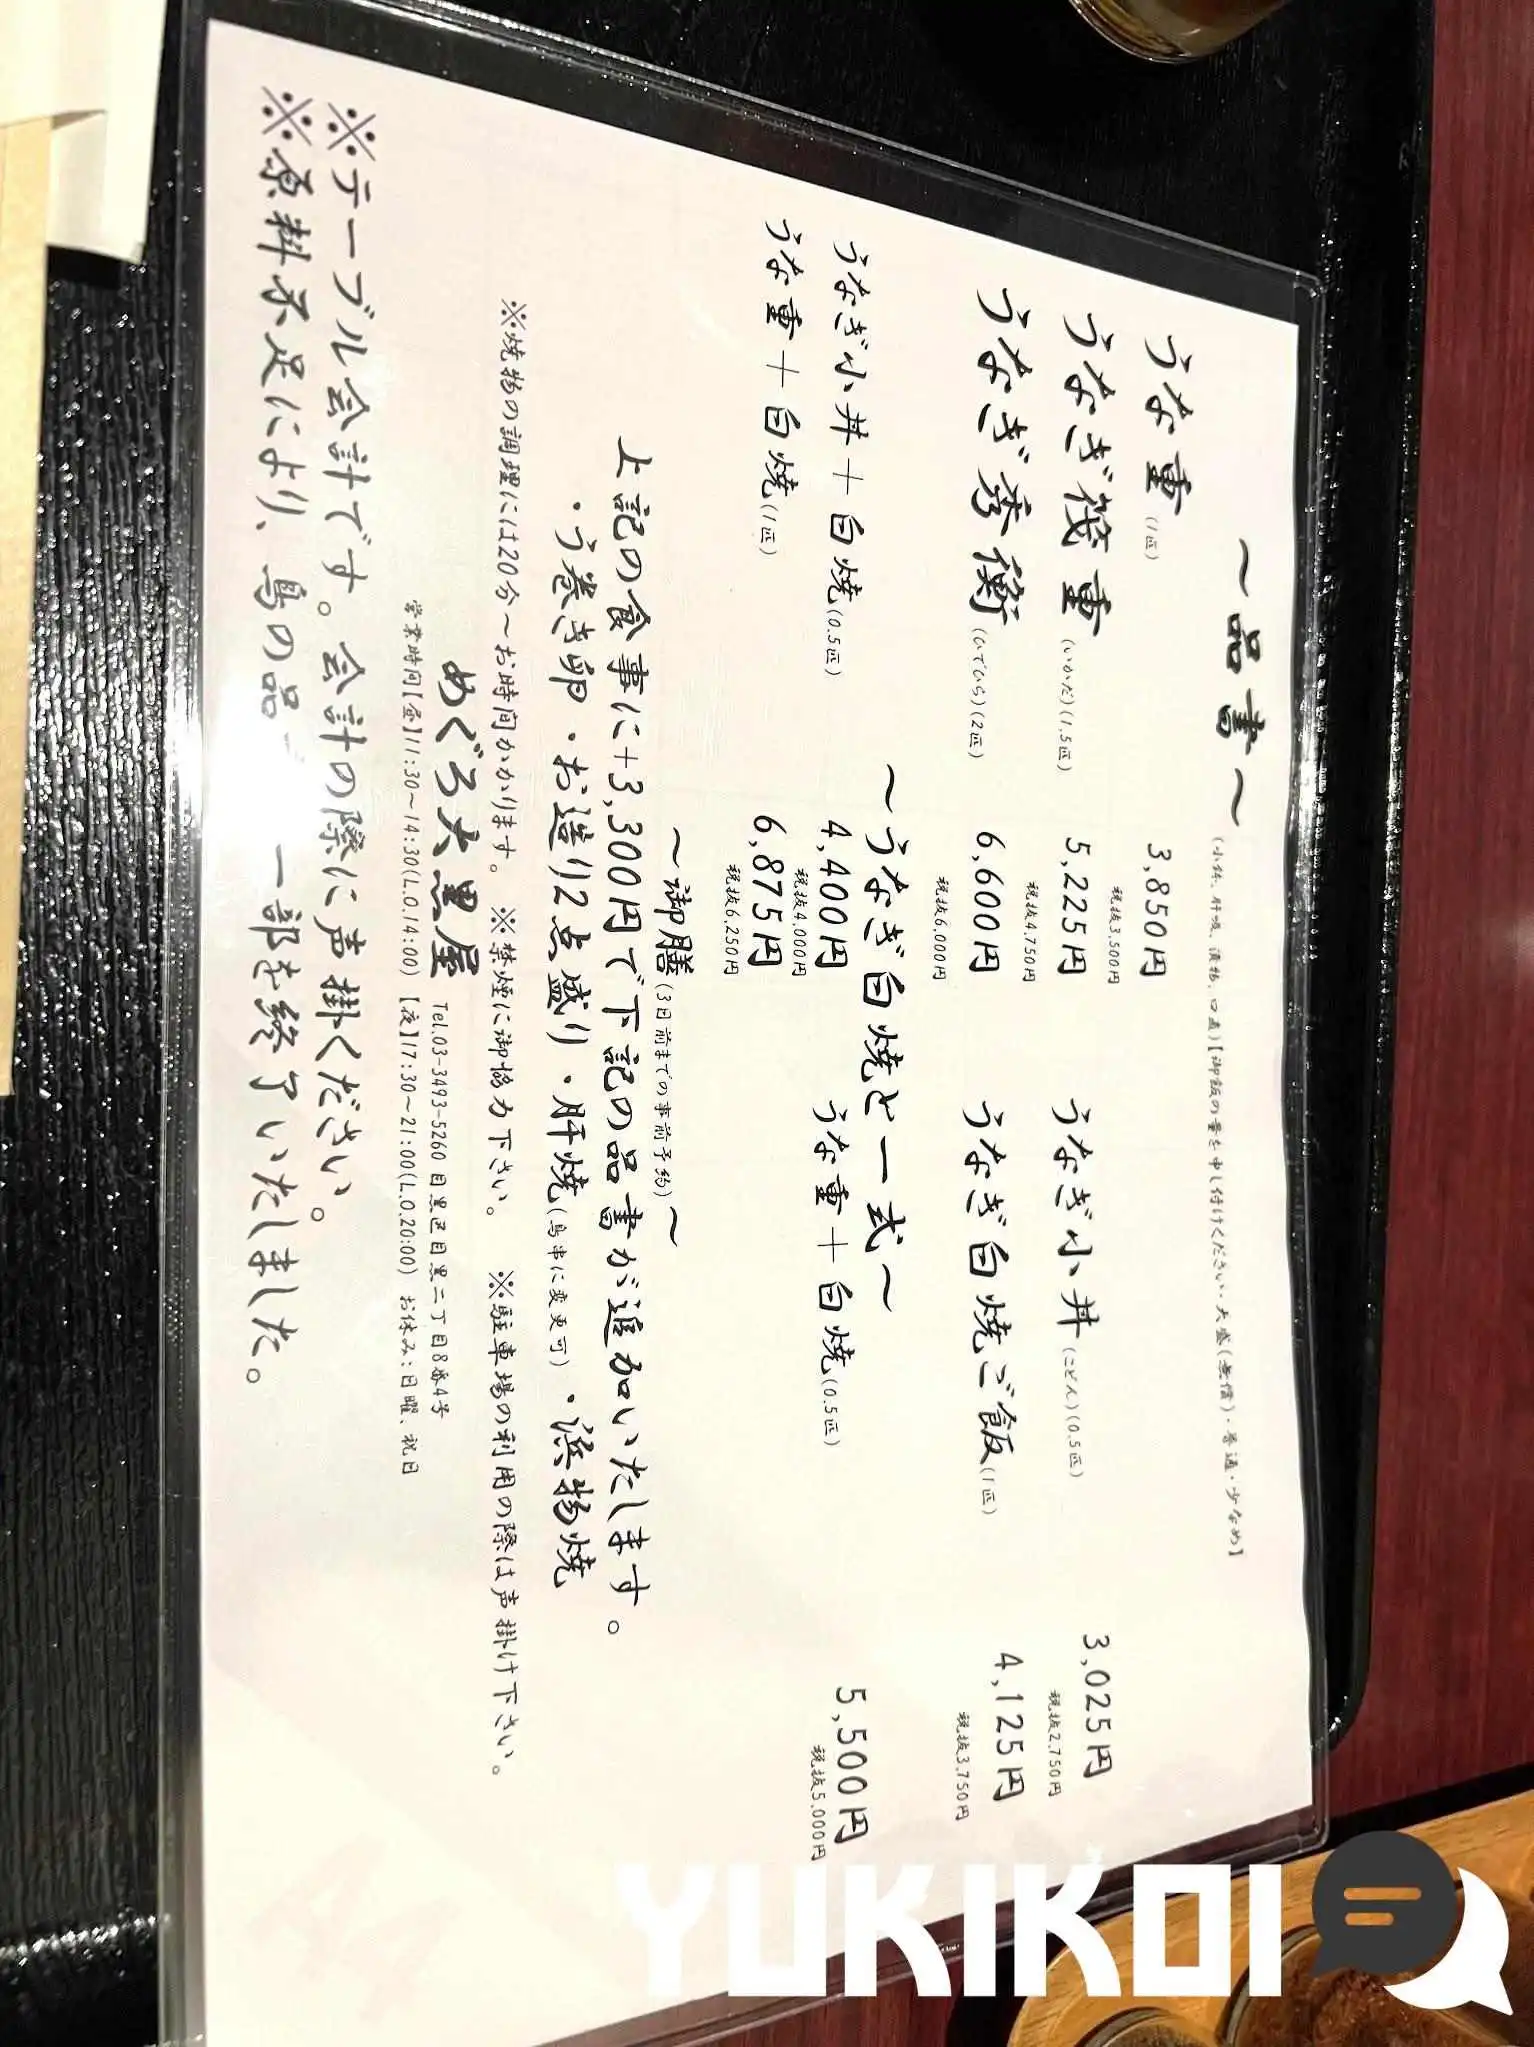 ～品書～
(小鉢、肝吸、漬物、口直)【御飯の量を申し付けください・大盛(無償)・普通・少なめ】
うな重(1匹) 3,850円
税抜3,500円
うなぎ筏重(いかだ)(1.5匹) 5,225円
税抜4,750円
うなぎ小丼(こどん)(0.5匹) 3,025円
税抜2,750円
うなぎ秀衡(ひでひら)(2匹) 6,600円
税抜6,000円
うなぎ白焼ご飯(1匹) 4,125円
税抜3,750円
～うなぎ白焼と一式～
うなぎ小丼＋白焼(0.5匹) 4,400円
税抜4,000円
うな重＋白焼(0.5匹) 5,500円
税抜5,000円
うな重＋白焼(1匹) 6,875円
税抜6,250円
～御膳(3日前までの事前予約)～
上記の食事に+3,300円で下記の品書が追加いたします。
・う巻き卵・お造り2点盛り・肝焼(鳥串に変更可)・浜物焼
※焼物の調理には20分～お時間かかります。 ※禁煙に御協力下さい。 ※駐車場の利用の際は声掛け下さい。
めぐろ大黒屋 Tel.03-3493-5260 目黒区目黒二丁目8番4号
営業時間【昼】11:30～14:30(L.O.14:00) 【夜】17:30～21:00(L.O.20:00) お休み:日曜、祝日
※テーブル会計です。会計の際に声掛ください。
※原料不足により、鳥の品 一部を終了いたしました。
YUKIKOI